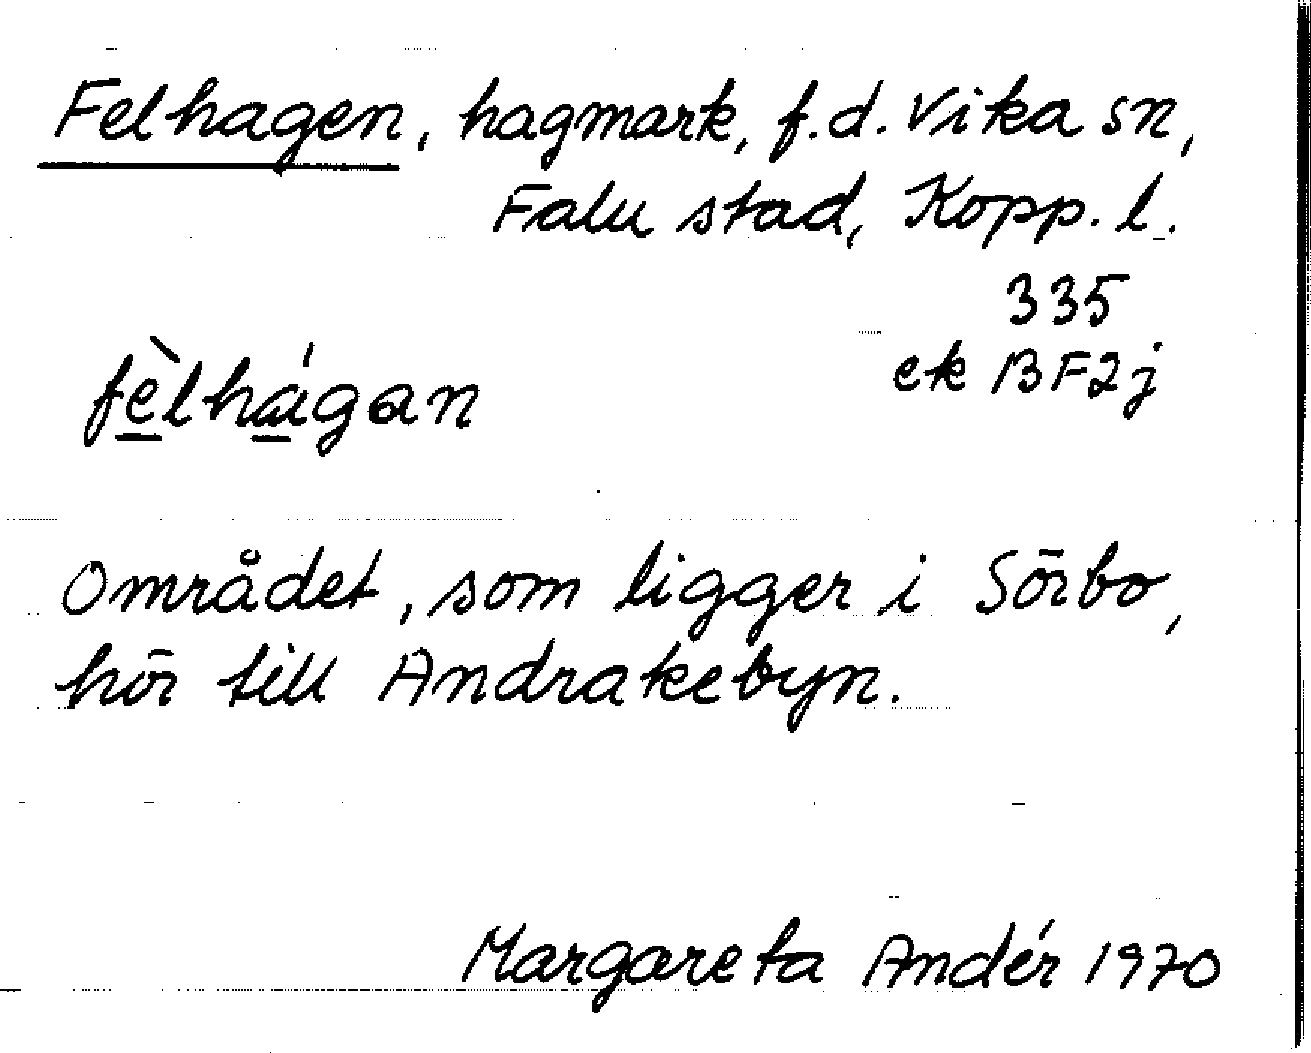 Felhagen, hagmark, f.d. Vika sn,
Falu stad, Kopp. l.
335
ek BF2j
fèlhágan
Området, som ligger i Sörbo,
hör till Andrakebyn.
Margareta Andér 1970